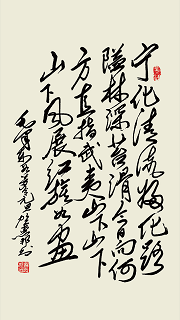 宁化清流归化路
隘林深苔滑今日向何
方直指武夷山下山下
山下风展红旗如画
毛泽东如梦令元旦